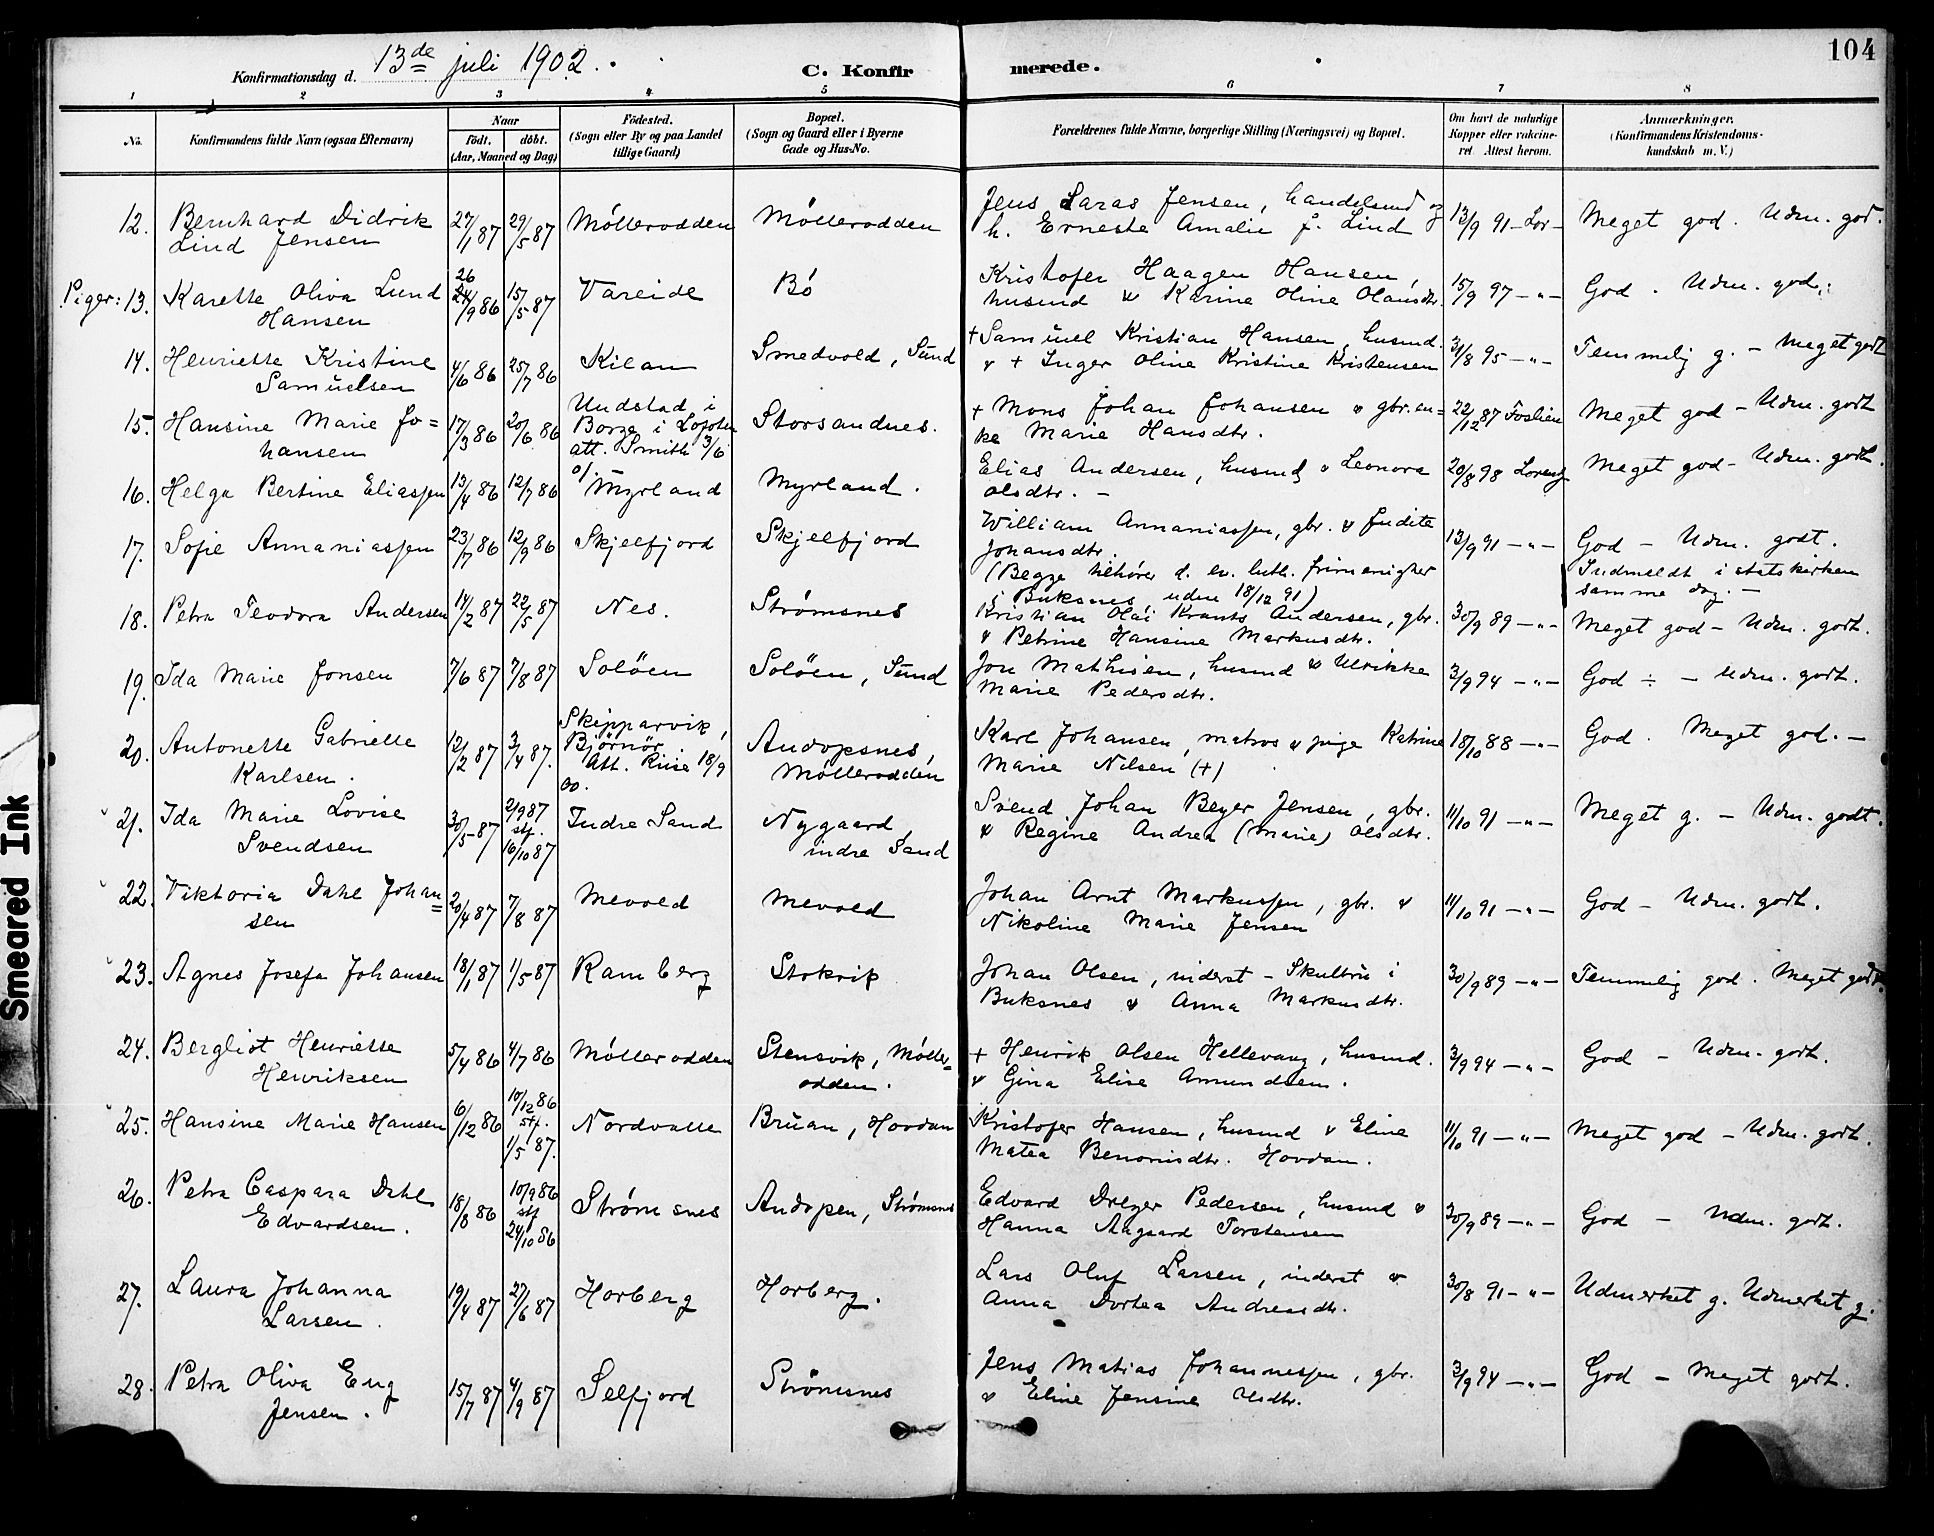 104
Konfirmationsdag d. 13de juli 1902.
C. Konfirmerede.
1 2 3 4 5 6 7 8
No.
Konfirmandens fulde Navn (ogsaa Efternavn)
Naar
födt. döbt.
(Aar, Maaned og Dag)
Födested.
(Sogn eller By og paa Landet
tillige Gaard)
Bopæl.
(Sogn og Gaard eller i Byerne
Gade og Hus-No.
Forældrenes fulde Navne, borgerlige Stilling (Næringsvei) og Bopæl.
Om havt de naturlige
Kopper eller vakcine-
ret Attest herom.
Anmærkninger.
(Konfirmandens Kristendoms-
kundskab m. V.)
12. Bernhard Didrik 27/1 87 29/5 87 Möllerodden Möllerodden Jens Saras Jensen, handelsmd og 13/9 91 - Lor - Meget god. Udm. god.
Lind Jensen h. Erneste Amalie f. Lind
Piger: 13. Karette Oliva Lund 26 24/9 86 15/5 87 Vareide Bö Kristofer Haagen Hansen, 15/9 97 -"- God. Udm. god.
Hansen husmd & Karine Oline Olausdtr.
14. Henriette Kristine 4/6 86 25/7 86 Kilan Smedvold, Sund + Samuel Kristian Hansen, husmd. 31/8 95 -"- Temmelig g. - Meget godt
Samuelsen & + Inger Oline Kristine Kristensen
15. Hansine Marie Jo= 17/3 86 20/6 86 Undstad i Storsandnes. + Mons Johan Johansen & gbr.en= 22/12 87 Foslien Meget god - Udm. godt
hansen Borge i Lofoten ke Marie Hansdtr.
att. Smith 3/6
01.
16. Helga Bertine Eliassen 13/4 86 12/7 86 Myrland Myrland. Elias Andersen, husmd & Leonora 20/8 98 Lorentz Meget god - Udm. godt.
Olsdtr. -
17. Sofie Annaniassen 23/7 86 12/9 86 Skjelfjord Skjelfjord William Annaniassen, gbr. & Judite 13/9 91 -"- God - Udm. godt.
Johansdtr. Indmeldt i statskirken
(Begge tilhører d. ev. luth. frimenighet samme dag. -
i Buksnes udm 18/12 91)
18. Petra Teodora Andersen 14/2 87 22/5 87 Nes. Strømsnes Kristian Olai Krants Andersen, gbr. 30/9 89 -"- Meget god - Udm. godt.
& Petrine Hansine Markusdtr.
19. Ida Marie Jonsen 7/6 87 7/8 87 Solöen Solöen, Sund Jon Mathisen, husmd & Ulrikke 3/9 94 -"- God ÷ - Udm. godt.
Marie Pedersdtr.
20. Antonette Gabrielle 12/2 87 3/4 87. Skipparvik, Andopsnes, Karl Johansen, matros & pige Katrine 18/10 88 -"- God. Meget god. -
Karlsen. Bjørnør Möllerodden Marie Nilsen (+)
Att. Riise 18/9
00.
21. Ida Marie Lovise 30/5 87 2/9 87 Indre Sand Nygaard, Svend Johan Beyer Jensen, gbr. 11/10 91 -"- Meget g. - Udm. godt.
Svendsen stf. 16/10 87 indre Sand & Regine Andrea (Marie) Olsdtr.
22. Viktoria Dahl Johan= 20/4 87 7/8 87 Mevold Mevold Johan Arnt Markussen, gbr. & 11/10 91 -"- God - Udm. godt.
sen Nikoline Marie Jensen
23. Agnes Josefa Johansen 18/1 87 1/5 87 Ramberg Stokvik Johan Olsen, inderst - Skultbru i 30/9 89 -"- Temmelig god. Meget godt.
Buksnes & Anna Markusdtr.
24. Bergliot Henriette 5/4 86 4/7 86 Möllerodden Stensvik, Möller= + Henrik Olsen Hellevang, husmd. 3/9 94 -"- God - Udm. godt.
Henriksen odden. & Gina Elise Amundsen.
25. Hansine Marie Hansen 6/12 86 10/12 86 Nordvalle Bruan, Hovdan Kristofer Hansen, husmd & Eline 11/10 91 -"- Meget god - Udm. godt.
stf. 1/5 87. Matea Benonisdtr. Hovdan.
26. Petra Caspara Dahl 18/8 86 10/9 86 Strømsnes Andopen, Strømsnes Edvard Dreyer Pedersen, husmd & 30/9 89 -"- God - Udm. godt.
Edvardsen. stf 24/10 86 Hanna Aagaard Torstensen
27. Laura Johanna 19/4 87 27/6 87 Horberg Horberg. Lars Oluf Larsen, inderst & 30/8 91 -"- Udmerket g. Udmerket g.
Larsen. Anna Dortea Andreasdtr.
28. Petra Oliva Eng 15/7 87 4/9 87 Selfjord Strömsnes Jens Matias Johannessen, gbr. 3/9 94 -"- God - Meget godt.
Jensen. & Eline Jensine Olsdtr.
Smeared Ink